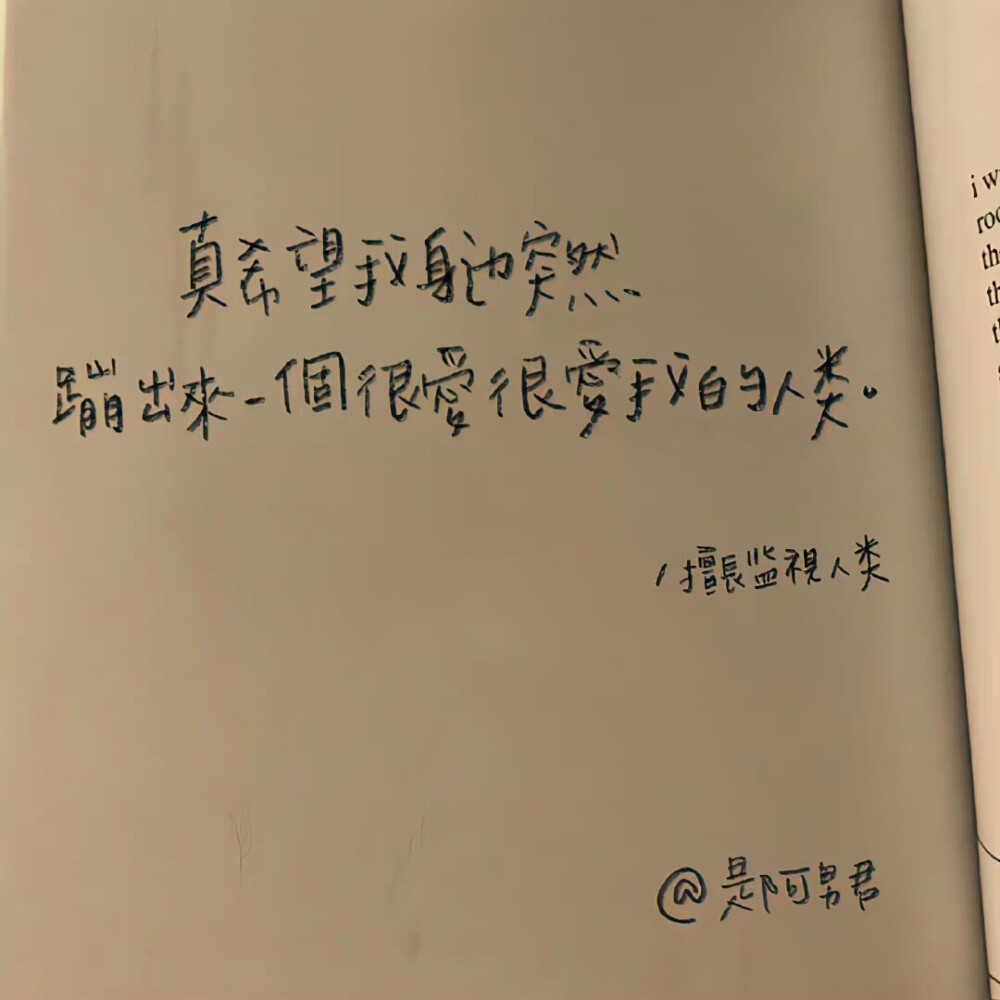 真希望我身边突然
蹦出來一個很愛很愛我的人类。
/擅長监視人类
@是阿男君
i w
roo
the
th
t